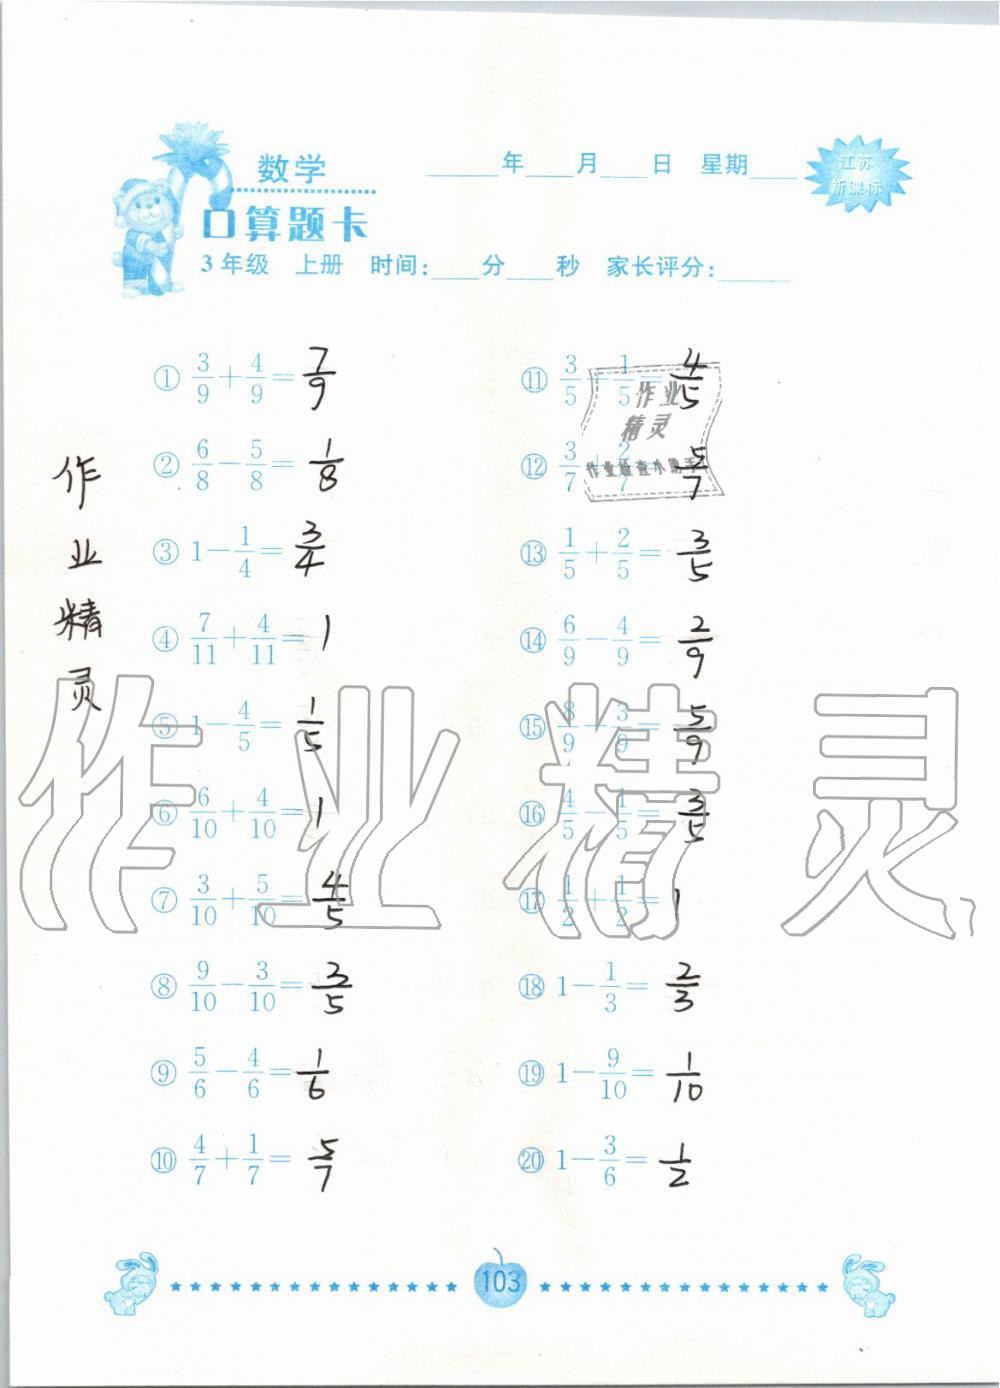 数学
____年____月____日 星期____
江苏
新课标
口算题卡
3年级 上册 时间:____分____秒 家长评分:____
① 3/9+4/9=7/9
② 6/8-5/8=1/8
③ 1-1/4=3/4
④ 7/11+4/11=1
⑤ 1-4/5=1/5
⑥ 6/10+4/10=1
⑦ 3/10+5/10=4/5
⑧ 9/10-3/10=3/5
⑨ 5/6-4/6=1/6
⑩ 4/7+1/7=5/7
⑪ 3/5+1/5=4/5
⑫ 3/7+2/7=5/7
⑬ 1/5+2/5=3/5
⑭ 6/9-4/9=2/9
⑮ 8/9-3/9=5/9
⑯ 4/5-1/5=3/5
⑰ 1/2+1/2=1
⑱ 1-1/3=2/3
⑲ 1-9/10=1/10
⑳ 1-3/6=1/2
作业精灵
作业
精灵
作业检查小助手
作业精灵
103